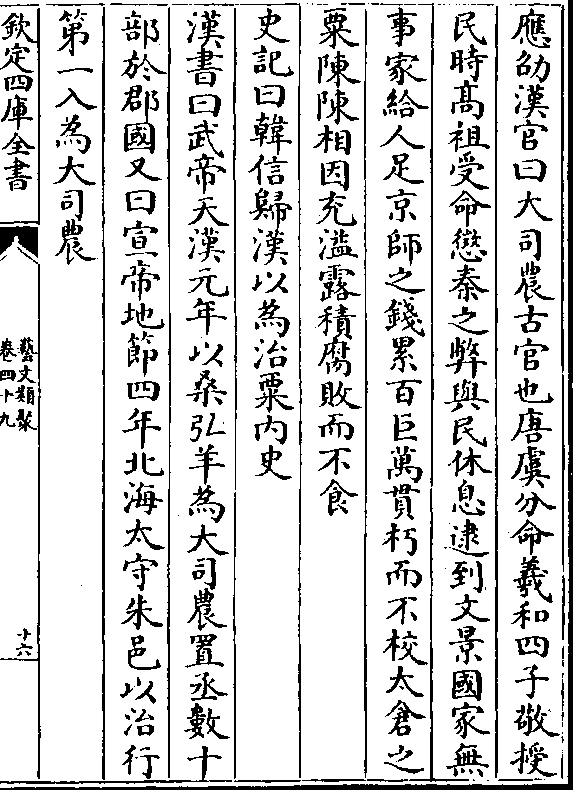 應劭漢官曰大司農古官也唐虞分命羲和四子敬授
民時髙祖受命懲秦之弊與民休息逮到文景國家無
事家給人足京師之錢累百巨萬貫朽而不校太倉之
粟陳陳相因充溢露積腐敗而不食
史記曰韓信歸漢以為治粟内史
漢書曰武帝天漢元年以桑弘羊為大司農置丞數十
部於郡國又曰宣帝地節四年北海太守朱邑以治行
第一入為大司農
欽定四庫全書
藝文類聚
卷四十九
十六